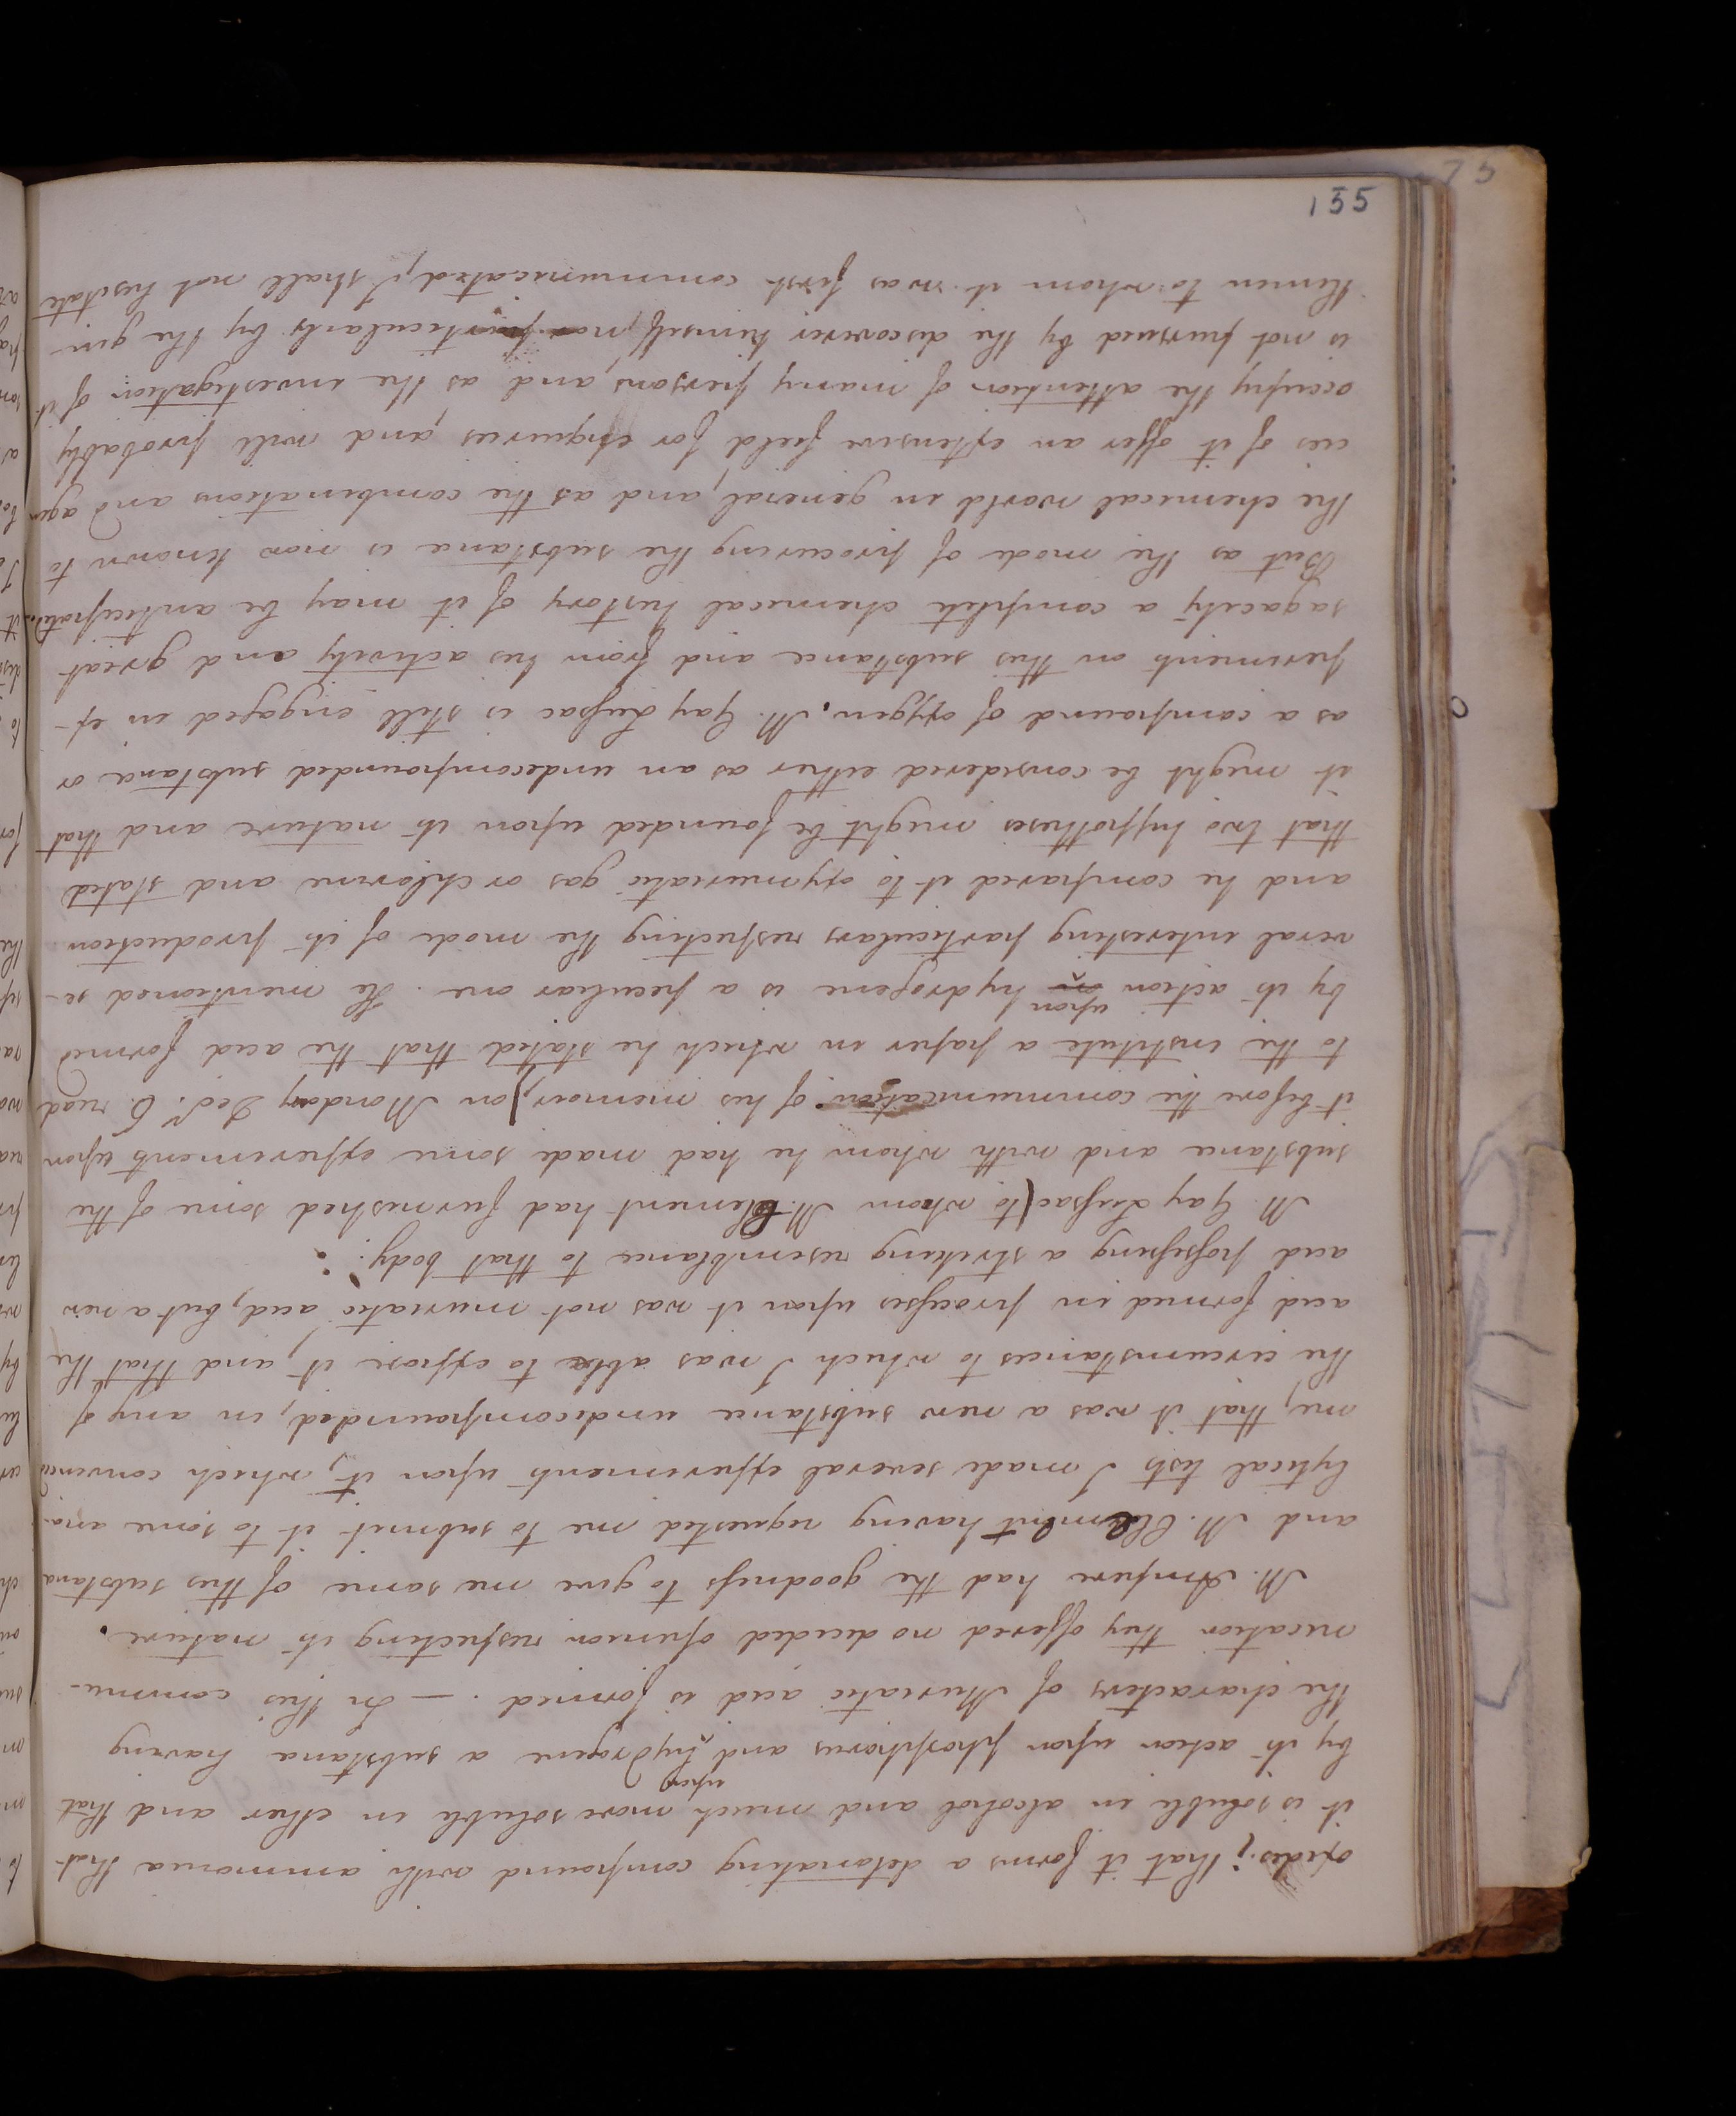 oxides; that it forms a detonating compound with ammonia that
it is soluble in alcohol and much more soluble in ether and that
by its action upon phosphorus and upon hydrogene a substance having
the characters of Muriatic acid is formed. — In this commu-
nication they offered no decided opinion respecting its nature.
M. Ampere had the goodness to give me some of this substance
and M. Clement having requested me to submit it to some ana-
lytical tests I made several experiments upon it, which convinced
me, that it was a new substance undecompounded, in any of
the circumstances to which I was able to expose it, and that the
acid formed in processes upon it was not muriatic acid, but a new
acid possessing a striking resemblance to that body.
M. Gay Lussac (to whom M. Clement had furnished some of the
substance and with whom he had made some experiments upon
it before the communication of his memoir,) on Monday Decr. 6. read
to the institute a paper in which he stated that the acid formed
by its action on upon hydrogene is a peculiar one. He mentioned se-
veral interesting particulars respecting the mode of its production
and he compared it to oxymuriatic gas or chlorine and stated
that two hypotheses might be founded upon its nature and that
it might be considered either as an undecompounded substance or
as a compound of oxygen. M. Gay Lussac is still engaged in ex-
periments on this substance and from his activity and great
sagacity a complete chemical history of it may be anticipated.
But as the mode of procuring the substance is now known to
the chemical world in general, and as the combinations and agen
cies of it offer an extensive field for enquiries and will probably
occupy the attention of many persons and as the investigation of it
is not pursued by the discoverer himself, nor particularly by the gen-
tlemen to whom it was first communicated, I shall not hesitate
155